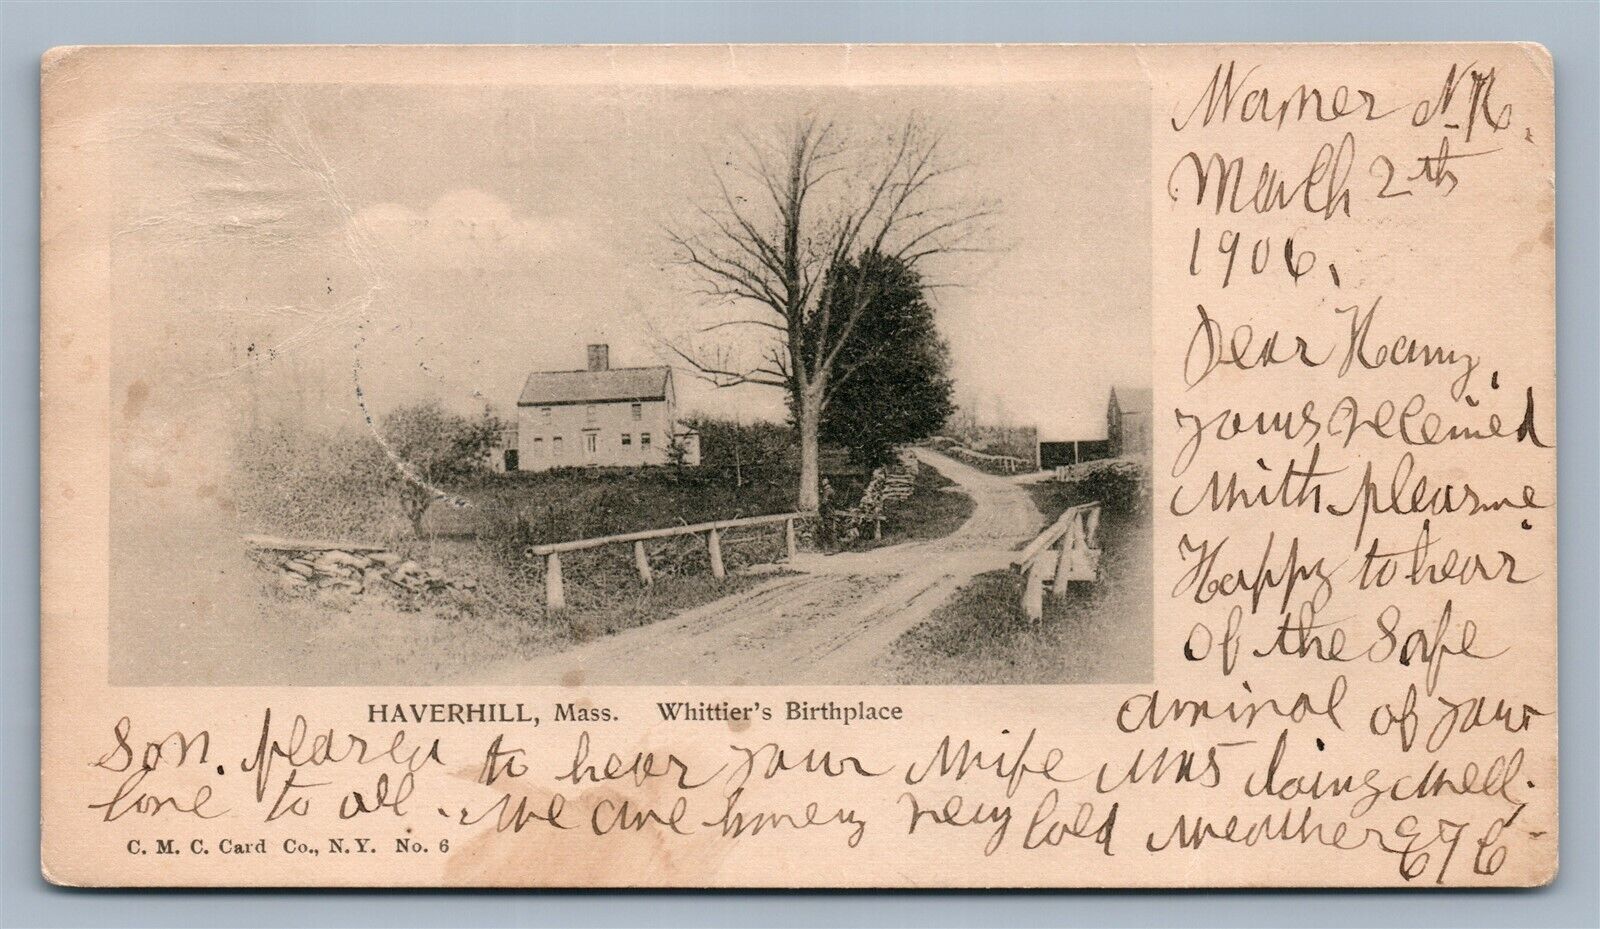 Warner N.H.
March 2th
1906.
Dear Harry,
yours received
with pleasure
Happy to hear
of the Safe
arrival of your
HAVERHILL, Mass. Whittier's Birthplace
Son. pleased to hear your Wife was doing well,
love to all. We are having very cold weather
C. M. C. Card Co., N.Y. No. 6